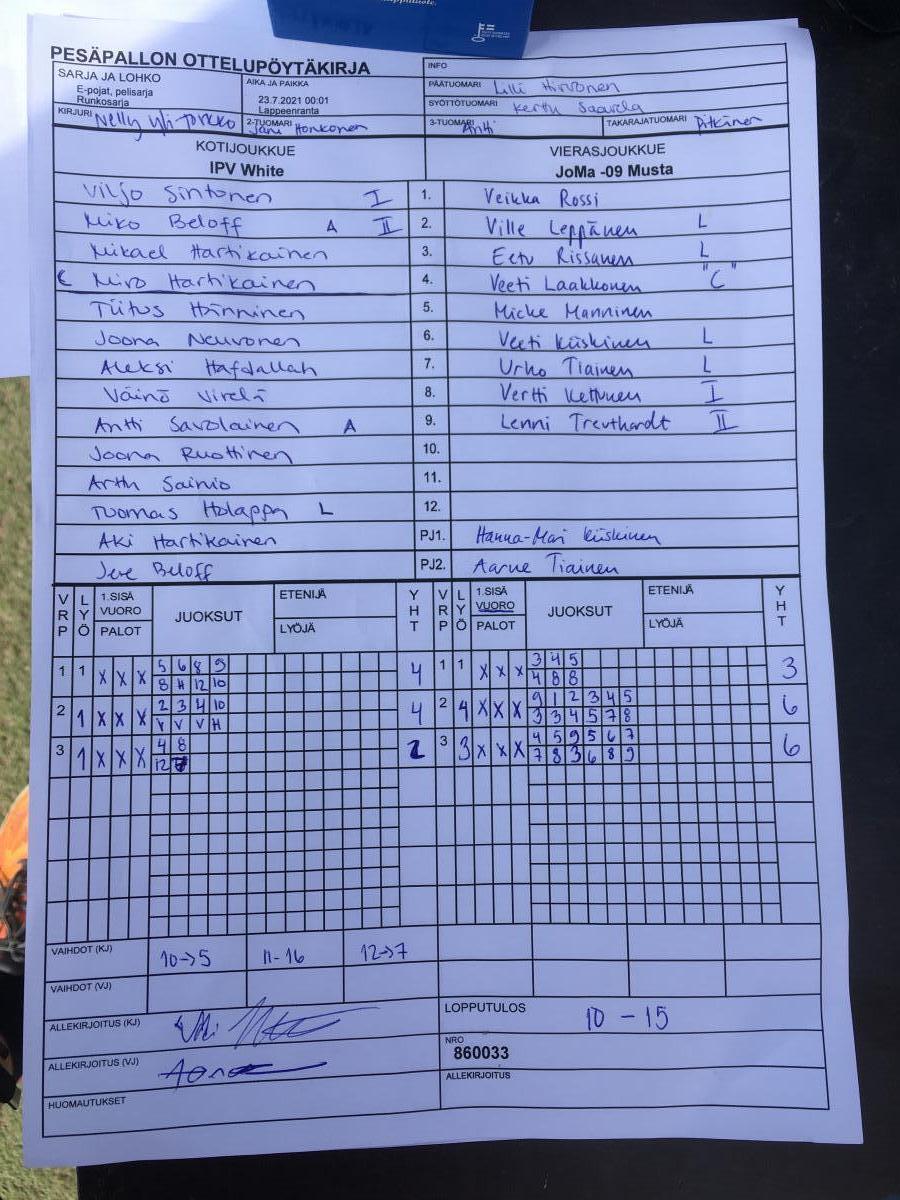 PESÄPALLON OTTELUPÖYTÄKIRJA
INFO
SARJA JA LOHKO
E-pojat, pelisarja
Runkosarja
AIKA JA PAIKKA
23.7.2021 00:01
Lappeenranta
PÄÄTUOMARI Lilli Hirvonen
SYÖTTÖTUOMARI Kerttu
KIRJURI Nelly
2-TUOMARI Jani Honkonen
3-TUOMARI Antti
TAKARAJATUOMARI Pitkänen
KOTIJOUKKUE
IPV White
VIERASJOUKKUE
JoMa -09 Musta
Viljo Sintonen I 1. Veikka Rossi
Miko Beloff A II 2. Ville Leppänen L
Mikael Hartikainen 3. Eetu Rissanen L
C Miro Hartikainen 4. Veeti Laakkonen "C"
Tiitus Hänninen 5. Micke Manninen
Joona Neuvonen 6. Veeti Kiiskinen L
Aleksi Hafdallah 7. Urho Tiainen L
Väinö Virelä 8. Vertti Kettunen I
Antti Savolainen A 9. Lenni Treuthardt II
Joona Ruottinen 10.
Arttu Sainio 11.
Tuomas Holappa L 12.
Aki Hartikainen PJ1. Hanna-Mari Kiiskinen
Jere Beloff PJ2. Aarne Tiainen
VRP LYÖ 1.SISÄ VUORO PALOT JUOKSUT ETENIJÄ LYÖJÄ YHT VRP LYÖ 1.SISÄ VUORO PALOT JUOKSUT ETENIJÄ LYÖJÄ YHT
1 1 X X X 5 6 8 9 4 1 1 X X X 3 4 5 3
8 H 12 10 4 8 8
2 1 X X X 2 3 4 10 4 2 4 X X X 9 1 2 3 4 5 6
V V V H 3 3 4 5 7 8
3 1 X X X 4 8 2 3 3 X X X 4 5 9 5 6 7 6
12 7 8 3 6 8 9
VAIHDOT (KJ) 10->5 11-16 12->7
VAIHDOT (VJ)
ALLEKIRJOITUS (KJ)
LOPPUTULOS 10 - 15
ALLEKIRJOITUS (VJ)
NRO
860033
HUOMAUTUKSET
ALLEKIRJOITUS